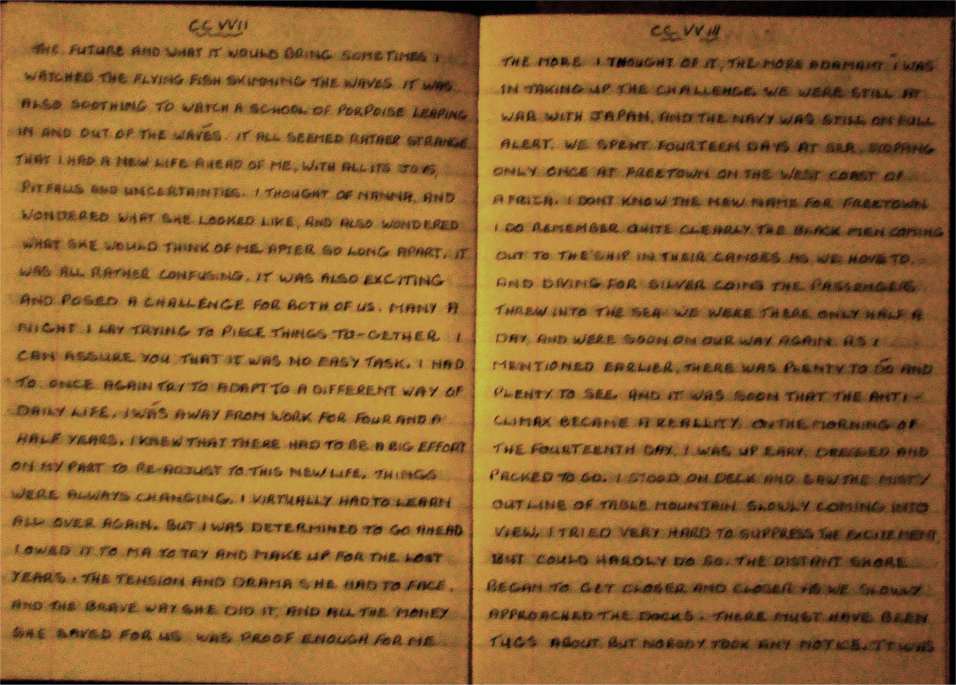 CC VVII
THE FUTURE AND WHAT IT WOULD BRING SOMETIMES I
WATCHED THE FLYING FISH SKIMMING THE WAVES. IT WAS
ALSO SOOTHING TO WATCH A SCHOOL OF PORPOISE LEAPING
IN AND OUT OF THE WAVES. IT ALL SEEMED RATHER STRANGE
THAT I HAD A NEW LIFE AHEAD OF ME, WITH ALL ITS JOYS,
PITFALLS AND UNCERTAINTIES. I THOUGHT OF NANNA, AND
WONDERED WHAT SHE LOOKED LIKE, AND ALSO WONDERED
WHAT SHE WOULD THINK OF ME AFTER SO LONG APART. IT
WAS ALL RATHER CONFUSING. IT WAS ALSO EXCITING
AND POSED A CHALLENGE FOR BOTH OF US. MANY A
NIGHT I LAY TRYING TO PIECE THINGS TO-GETHER. I
CAN ASSURE YOU THAT IT WAS NO EASY TASK. I HAD
TO ONCE AGAIN TRY TO ADAPT TO A DIFFERENT WAY OF
DAILY LIFE. I WAS AWAY FROM WORK FOR FOUR AND A
HALF YEARS. I KNEW THAT THERE HAD TO BE A BIG EFFORT
ON MY PART TO RE-ADJUST TO THIS NEW LIFE. THINGS
WERE ALWAYS CHANGING. I VIRTUALLY HAD TO LEARN
ALL OVER AGAIN. BUT I WAS DETERMINED TO GO AHEAD
I OWED IT TO MA TO TRY AND MAKE UP FOR THE LOST
YEARS. THE TENSION AND DRAMA SHE HAD TO FACE,
AND THE BRAVE WAY SHE DID IT, AND ALL THE MONEY
SHE SAVED FOR US WAS PROOF ENOUGH FOR ME
CC VV III
THE MORE I THOUGHT OF IT, THE MORE ADAMANT I WAS
IN TAKING UP THE CHALLENGE. WE WERE STILL AT
WAR WITH JAPAN, AND THE NAVY WAS STILL ON FULL
ALERT. WE SPENT FOURTEEN DAYS AT SEA, STOPPING
ONLY ONCE AT FREETOWN ON THE WEST COAST OF
AFRICA. I DONT KNOW THE NEW NAME FOR FREETOWN
I DO REMEMBER QUITE CLEARLY THE BLACK MEN COMING
OUT TO THE SHIP IN THEIR CANOES AS WE HOVE TO,
AND DIVING FOR SILVER COINS THE PASSENGERS
THREW INTO THE SEA. WE WERE THERE ONLY HALF A
DAY, AND WERE SOON ON OUR WAY AGAIN. AS I
MENTIONED EARLIER, THERE WAS PLENTY TO DO AND
PLENTY TO SEE. AND IT WAS SOON THAT THE ANTI-
CLIMAX BECAME A REALLITY. ON THE MORNING OF
THE FOURTEENTH DAY, I WAS UP EARY, DRESSED AND
PACKED TO GO. I STOOD ON DECK AND SAW THE MISTY
OUTLINE OF TABLE MOUNTAIN SLOWLY COMING INTO
VIEW. I TRIED VERY HARD TO SUPPRESS THE EXCITEMENT,
BUT COULD HARDLY DO SO. THE DISTANT SHORE
BEGAN TO GET CLOSER AND CLOSER AS WE SLOWLY
APPROACHED THE DOCKS. THERE MUST HAVE BEEN
TUGS ABOUT BUT NOBODY TOOK ANY NOTICE. IT WAS